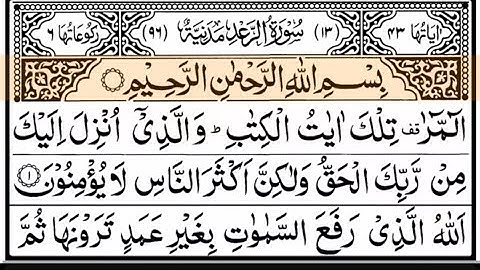 اٰیَاتُهَا ۴۳ (۱۳) سُوْرَةُ الرَّعْدِ مَدَنِیَّةٌ (۹٦) رُکُوْعَاتُهَا ٦
بِسْمِ اللّٰهِ الرَّحْمٰنِ الرَّحِیْمِ
الٓمّٓرٰ قف تِلْكَ اٰیٰتُ الْكِتٰبِ ؕ وَالَّذِیْۤ اُنْزِلَ اِلَیْكَ
مِنْ رَّبِّكَ الْحَقُّ وَلٰكِنَّ اَكْثَرَ النَّاسِ لَا یُؤْمِنُوْنَ ۱
اَللّٰهُ الَّذِیْ رَفَعَ السَّمٰوٰتِ بِغَیْرِ عَمَدٍ تَرَوْنَهَا ثُمَّ